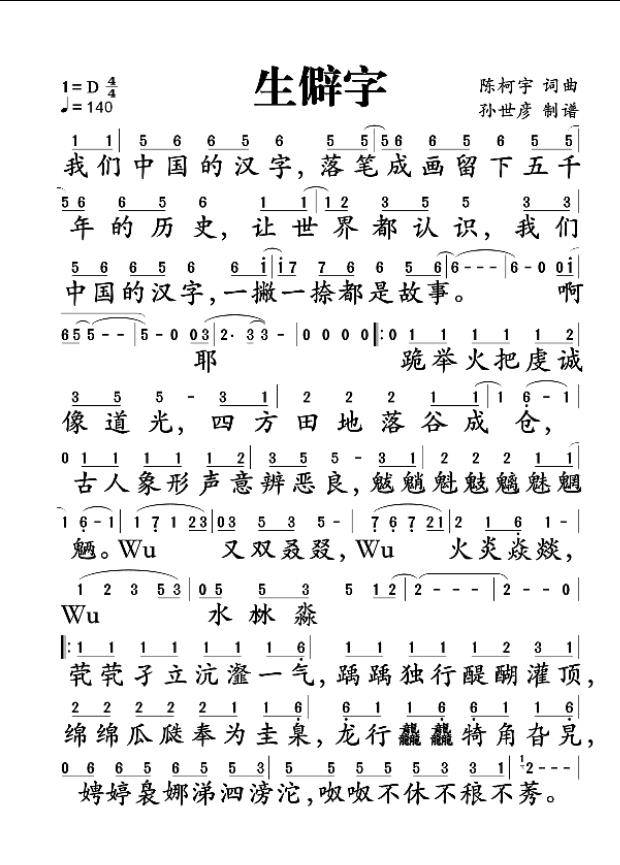 生僻字
1=D 4/4
♩=140
陈柯宇 词曲
孙世彦 制谱
1 1 | 5 6 6 5 6 5 5 | 5 6 6 5 6 5 5 5 |
我们中国的汉字，落笔成画留下五千
5 6 6 5 5 1 1 | 1 2 3 5 5 5 3 3
年的历史，让世界都认识，我们
5 6 6 5 6 6 i | i 7 7 6 6 5 6 | 6 - - - | 6 - 0 0 i
中国的汉字，一撇一捺都是故事。 啊
6 5 5 - - | 5 - 0 0 3 | 2· 3 3 - | 0 0 0 0 :‖: 0 1 1 1 1 1 2
耶 跪举火把虔诚
3 5 5 - 3 1 | 2 2 2 1 1 | 1 6 - 1
像道光，四方田地落谷成仓，
0 1 1 1 1 1 2 | 3 5 5 - 3 1 | 2 2 2 1 1
古人象形声意辨恶良，魃魈魁鬾魑魅魍
1 6 - 1 | 1 7 1 2 3 | 0 3 5 3 5 - | 7 6 7 2 1 | 2 1 6 1
魉。Wu 又双叒叕，Wu 火炎焱燚，
1 2 3 5 3 | 0 5 5 3 5 1 2 | 2 - - - | 2 - - 0
Wu 水沝淼
1 1 1 1 1 1 1 6 | 1 1 1 1 1 2 3 1
茕茕孑立沆瀣一气，踽踽独行醍醐灌顶，
2 2 2 2 2 1 1 6 | 6 1 1 6 6 6 6 6
绵绵瓜瓞奉为圭臬，龙行龘龘犄角旮旯，
0 6 6 5 6 5 5 3 | 5 5 5 5 3 5 5 | 2 - - -
娉婷袅娜涕泗滂沱，呶呶不休不稂不莠。